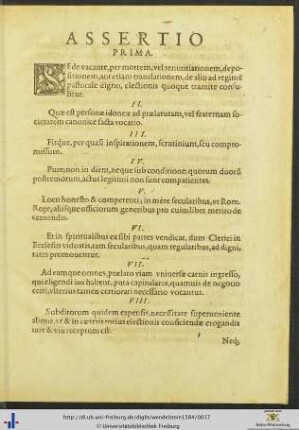 ASSERTIO
PRIMA.
SEde vacante, per mortem, vel renuntiationem, depo-
sitionem, aut etiam translationem, de alio ad regimē
pastorale digno, electionis quoque tramite consu-
litur.
II.
Quæ est personæ idoneæ ad prælaturam, vel fraternam so-
cietatem canonice facta vocatio.
III.
Fitque, per quasi inspirationem, scrutinium, seu compro-
missum.
IV.
Pure, non in diem, neque sub conditione, quorum duorū
postremorum, actus legitimi non sunt compatientes.
V.
Loco honesto & competenti, in mere secularibus, vt Rom.
Rege, alijsque officiorum generibus pro cuiuslibet merito de-
cernendis.
VI.
Et in spiritualibus ea sibi partes vendicat, dum Clerici in
Ecclesijs viduatis, tam secularibus, quam regularibus, ad digni-
tates promouentur.
VII.
Ad eamque omnes, prælato viam vniuersæ carnis ingresso,
qui eligendi ius habent, puta capitulares, quamuis de negotio
certi, vlterius tamen certiorari necessario vocantur.
VIII.
Subditorum quidem expensis, necessitate superueniente
aliqua, vt & in cæteris rerum electionis conficiendæ eroganda
iure & vsu receptum est.
Neq;
http://dl.ub.uni-freiburg.de/diglit/wendelstein1584/0017
© Universitätsbibliothek Freiburg